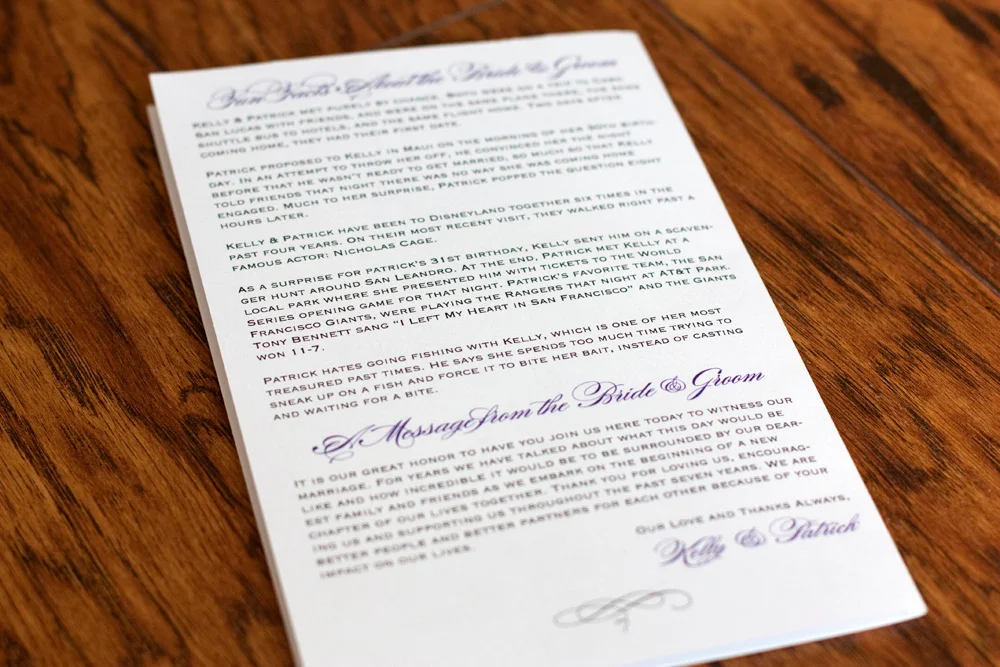 Fun Facts About the Bride & Groom
KELLY & PATRICK MET PURELY BY CHANCE. BOTH WERE ON A TRIP TO CABO
SAN LUCAS WITH FRIENDS, AND WERE ON THE SAME PLANE THERE, THE SAME
SHUTTLE BUS TO HOTELS, AND THE SAME FLIGHT HOME. TWO DAYS AFTER
COMING HOME, THEY HAD THEIR FIRST DATE.
PATRICK PROPOSED TO KELLY IN MAUI ON THE MORNING OF HER 30TH BIRTH-
DAY. IN AN ATTEMPT TO THROW HER OFF, HE CONVINCED HER THE NIGHT
BEFORE THAT HE WASN'T READY TO GET MARRIED, SO MUCH SO THAT KELLY
TOLD FRIENDS THAT NIGHT THERE WAS NO WAY SHE WAS COMING HOME
ENGAGED. MUCH TO HER SURPRISE, PATRICK POPPED THE QUESTION EIGHT
HOURS LATER.
KELLY & PATRICK HAVE BEEN TO DISNEYLAND TOGETHER SIX TIMES IN THE
PAST FOUR YEARS. ON THEIR MOST RECENT VISIT, THEY WALKED RIGHT PAST A
FAMOUS ACTOR: NICHOLAS CAGE.
AS A SURPRISE FOR PATRICK'S 31ST BIRTHDAY, KELLY SENT HIM ON A SCAVEN-
GER HUNT AROUND SAN LEANDRO. AT THE END, PATRICK MET KELLY AT A
LOCAL PARK WHERE SHE PRESENTED HIM WITH TICKETS TO THE WORLD
SERIES OPENING GAME FOR THAT NIGHT. PATRICK'S FAVORITE TEAM, THE SAN
FRANCISCO GIANTS, WERE PLAYING THE RANGERS THAT NIGHT AT AT&T PARK.
TONY BENNETT SANG "I LEFT MY HEART IN SAN FRANCISCO" AND THE GIANTS
WON 11-7.
PATRICK HATES GOING FISHING WITH KELLY, WHICH IS ONE OF HER MOST
TREASURED PAST TIMES. HE SAYS SHE SPENDS TOO MUCH TIME TRYING TO
SNEAK UP ON A FISH AND FORCE IT TO BITE HER BAIT, INSTEAD OF CASTING
AND WAITING FOR A BITE.
A Message from the Bride & Groom
IT IS OUR GREAT HONOR TO HAVE YOU JOIN US HERE TODAY TO WITNESS OUR
MARRIAGE. FOR YEARS WE HAVE TALKED ABOUT WHAT THIS DAY WOULD BE
LIKE AND HOW INCREDIBLE IT WOULD BE TO BE SURROUNDED BY OUR DEAR-
EST FAMILY AND FRIENDS AS WE EMBARK ON THE BEGINNING OF A NEW
CHAPTER OF OUR LIVES TOGETHER. THANK YOU FOR LOVING US, ENCOURAG-
ING US AND SUPPORTING US THROUGHOUT THE PAST SEVEN YEARS. WE ARE
BETTER PEOPLE AND BETTER PARTNERS FOR EACH OTHER BECAUSE OF YOUR
IMPACT ON OUR LIVES.
OUR LOVE AND THANKS ALWAYS,
Kelly & Patrick